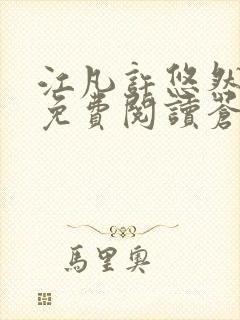 江凡許悠然
免費閱讀蒼
馬里奧